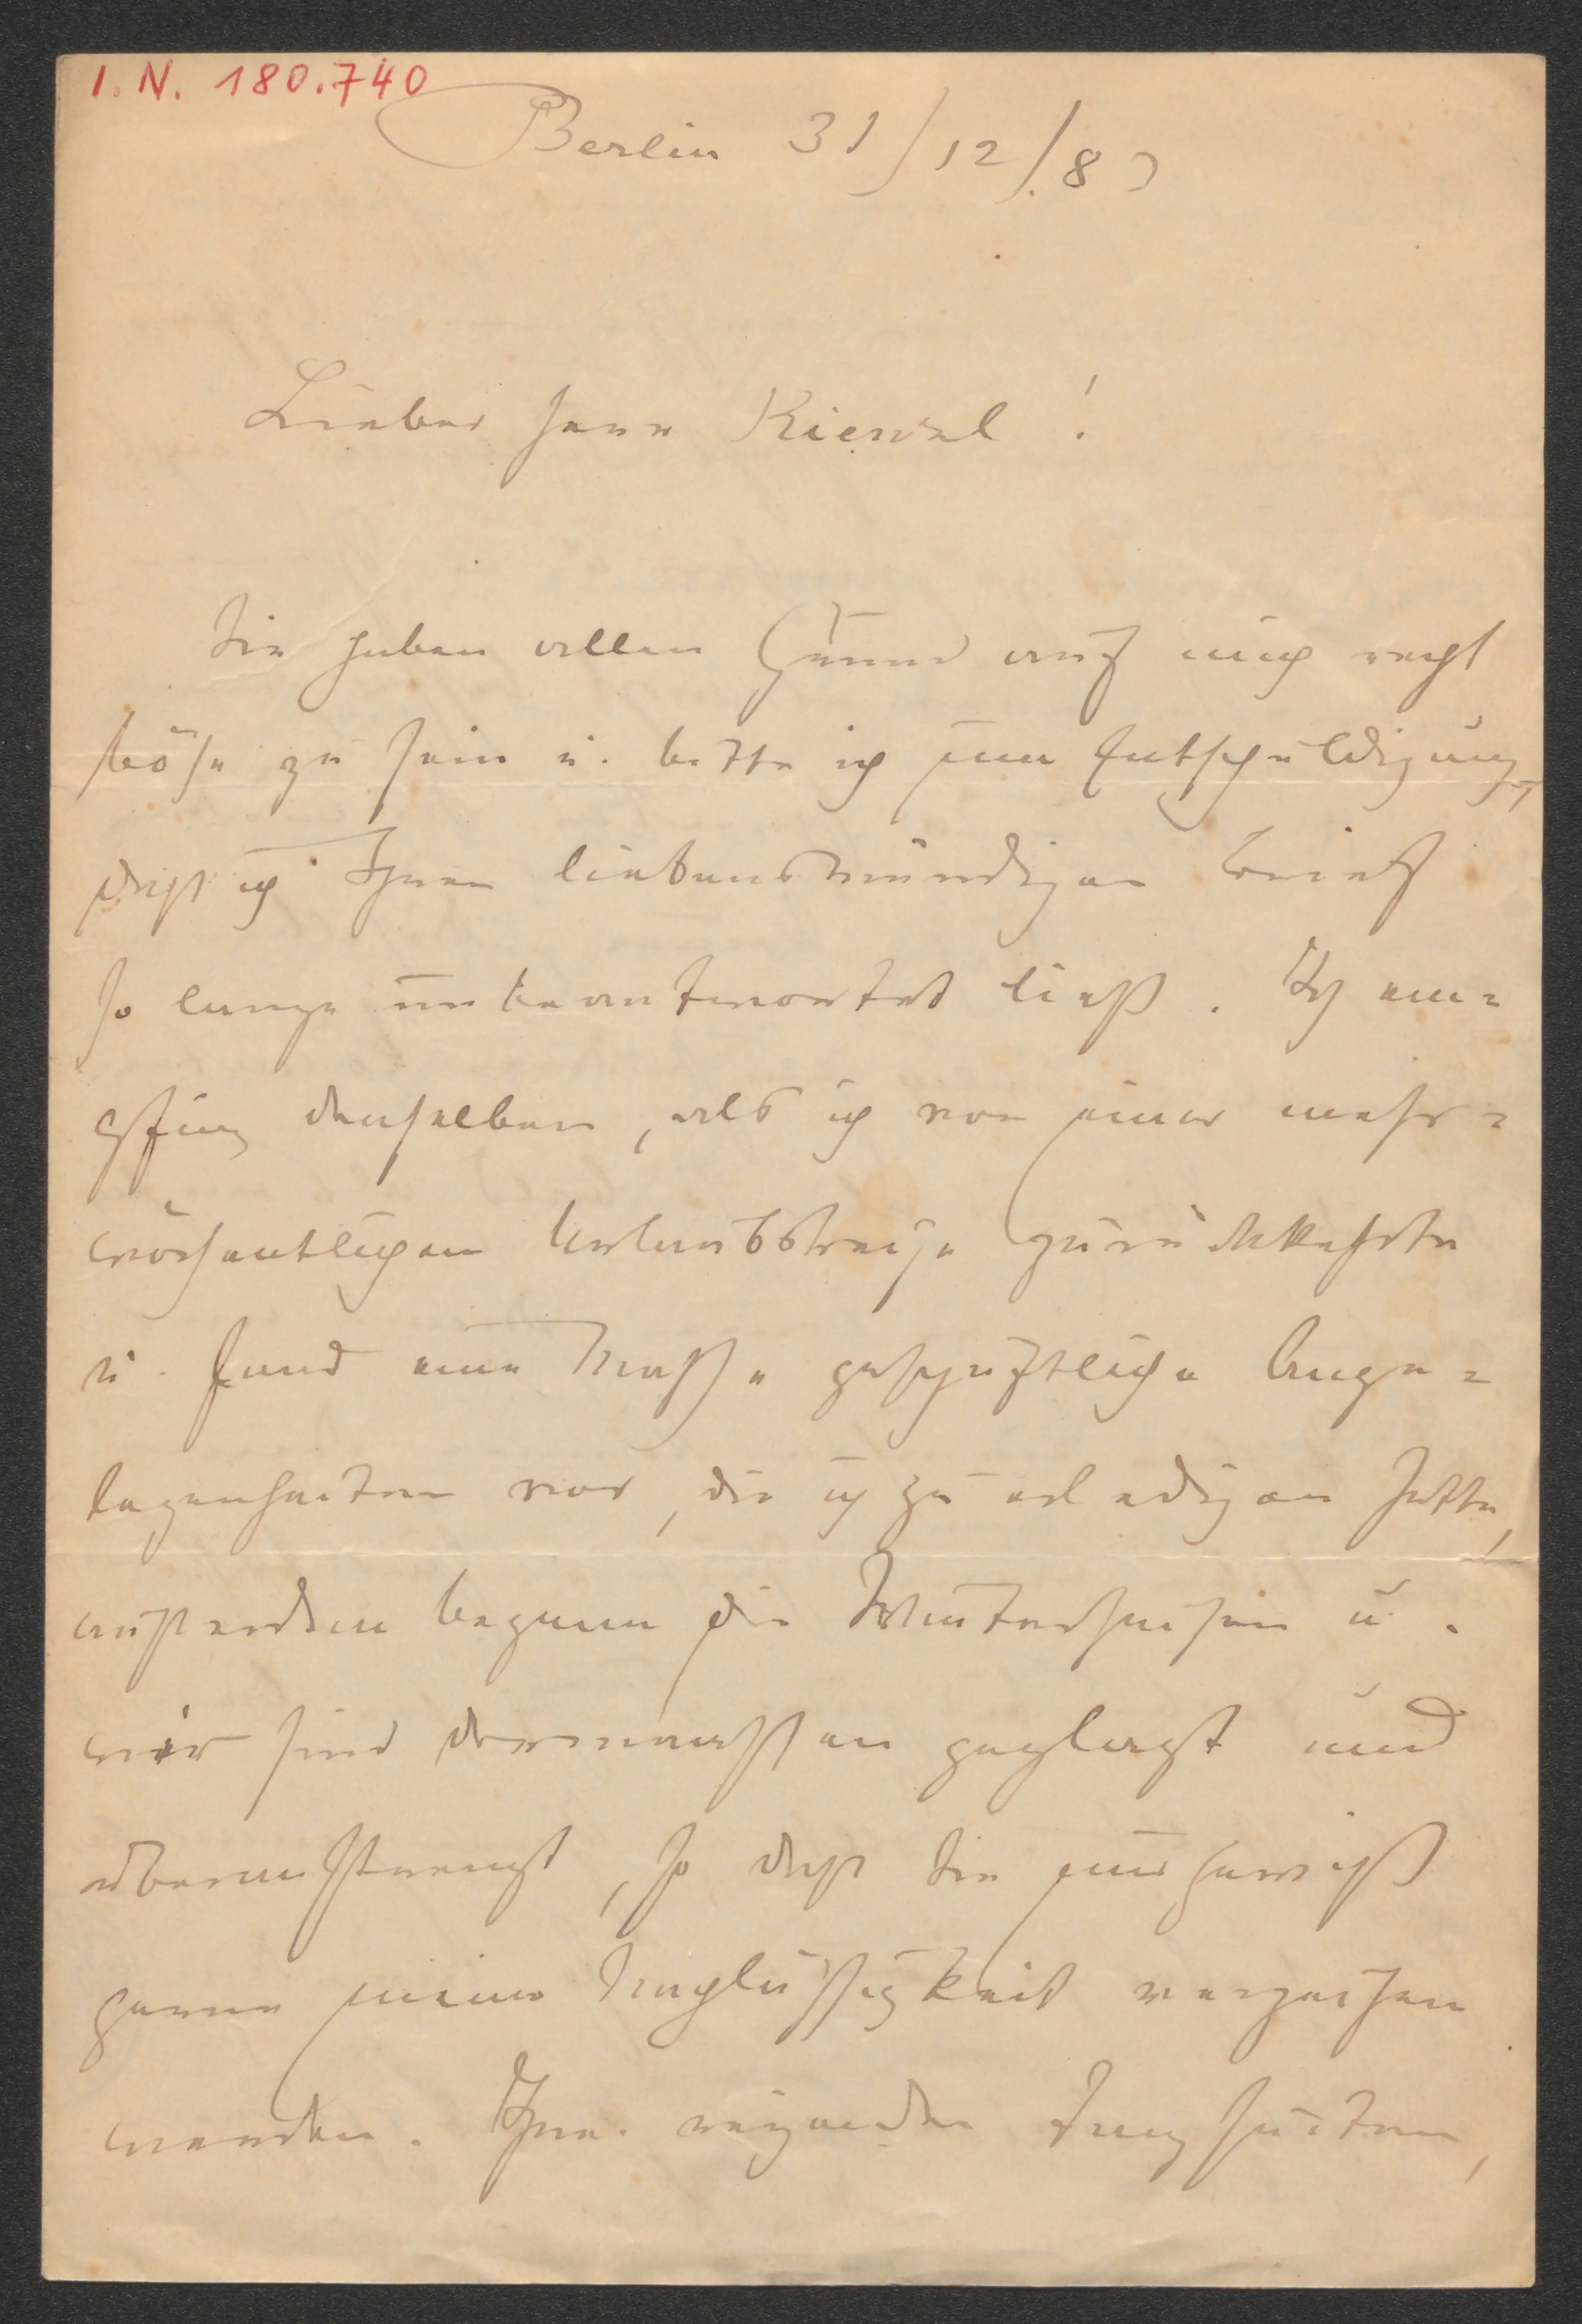 I. N. 180.740
Berlin 31/12/8
Lieber Herr Kienzl!
Sie haben allen Grund auf mich recht
böse zu sein u. bitte ich um Entschuldigung,
daß ich Ihren liebenswürdigen Brief
so lange unbeantwortet ließ. Ich em=
pfing denselben, als ich von einer mehr=
wöchentlichen Urlaubsreise zurückkehrte
u. fand eine Masse geschäftliche Ange=
legenheiten vor, die ich zu erledigen hatte,
außerdem begann die Wintersaison u.
wir sind dermaßen geplagt und
überanstrengt, so daß Sie mir gewiß
gerne meine Nachlässigkeit verzeihen
werden. Ihre reizenden Tanzweisen,